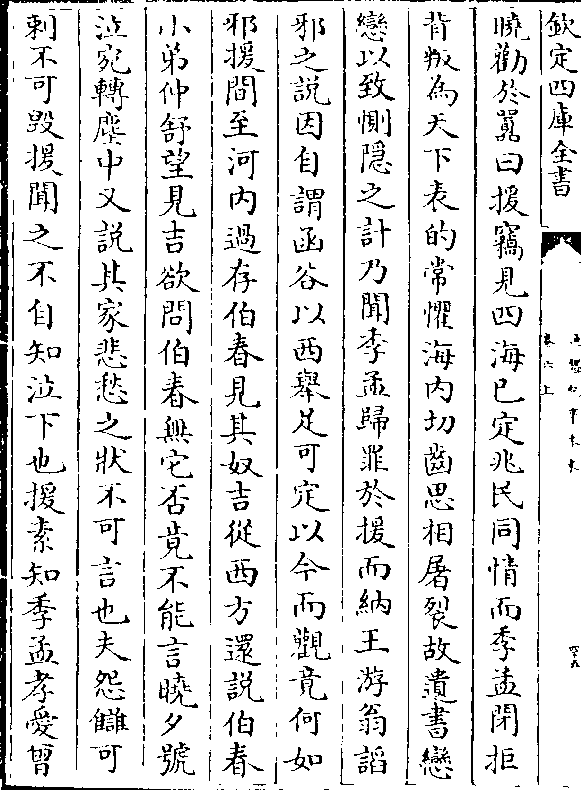 欽定四庫全書
曉勸於嚻曰援竊見四海已定兆民同情而季孟閉拒
背叛為天下表的常懼海内切齒思相屠裂故遺書戀
戀以致惻隱之計乃聞季孟歸罪於援而納王游翁謟
邪之説因自謂函谷以西舉足可定以今而觀竟何如
邪援間至河内過存伯春見其奴吉從西方還説伯春
小弟仲舒望見吉欲問伯春無它否竟不能言曉夕號
泣宛轉塵中又説其家悲愁之狀不可言也夫怨讎可
刺不可毀援聞之不自知泣下也援素知季孟孝愛曾